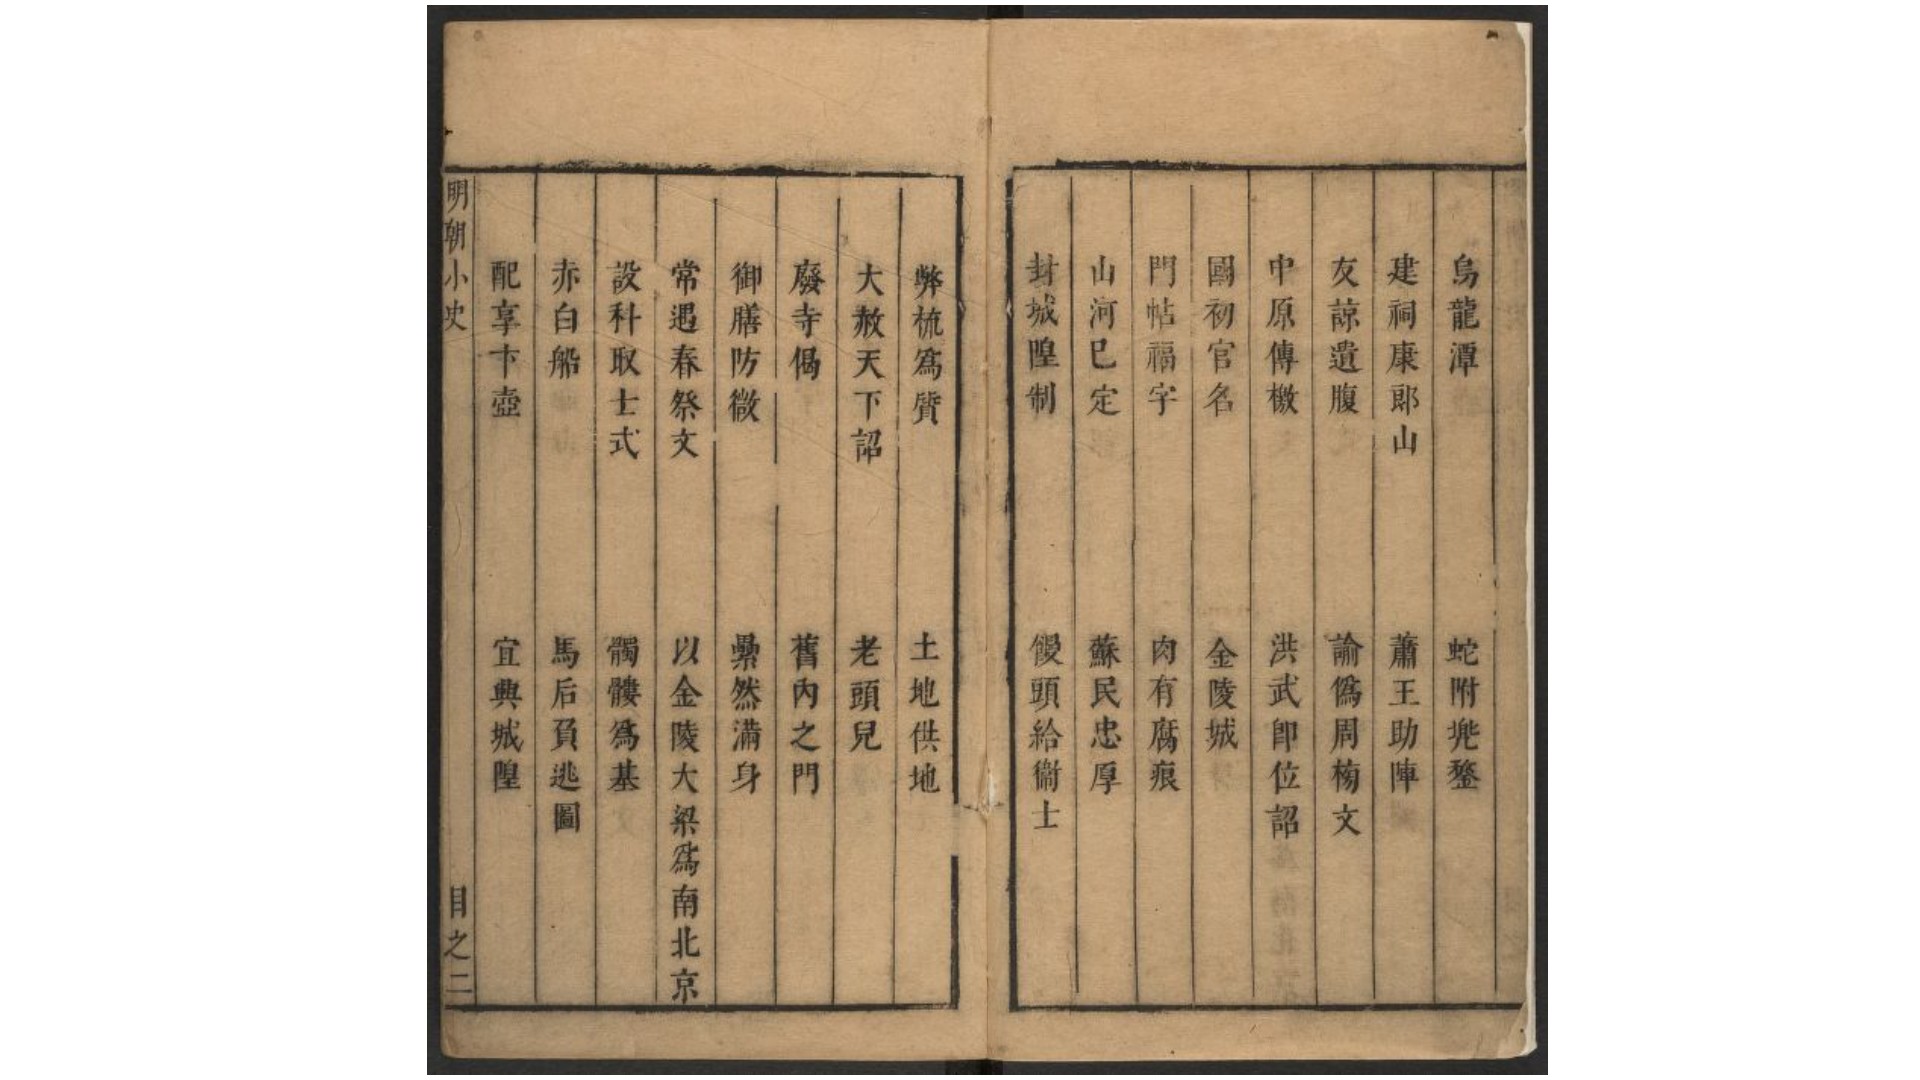 烏龍潭　蛇附兠鍪
建祠康郎山　蕭王助陣
友諒遺腹　諭僞周榜文
中原傳檄　洪武卽位詔
國初官名　金陵城
門帖福字　肉有腐痕
山河巳定　蘇民忠厚
封城隍制　饅頭給衞士
弊梳爲贊　土地供地
大赦天下詔　老頭兒
廢寺偈　舊内之門
御膳防微　纍然滿身
常遇春祭文　以金陵大梁爲南北京
設科取士式　髑髏爲基
赤白船　馬后負逃圖
配享卞壺　宜興城隍
明朝小史　目之二